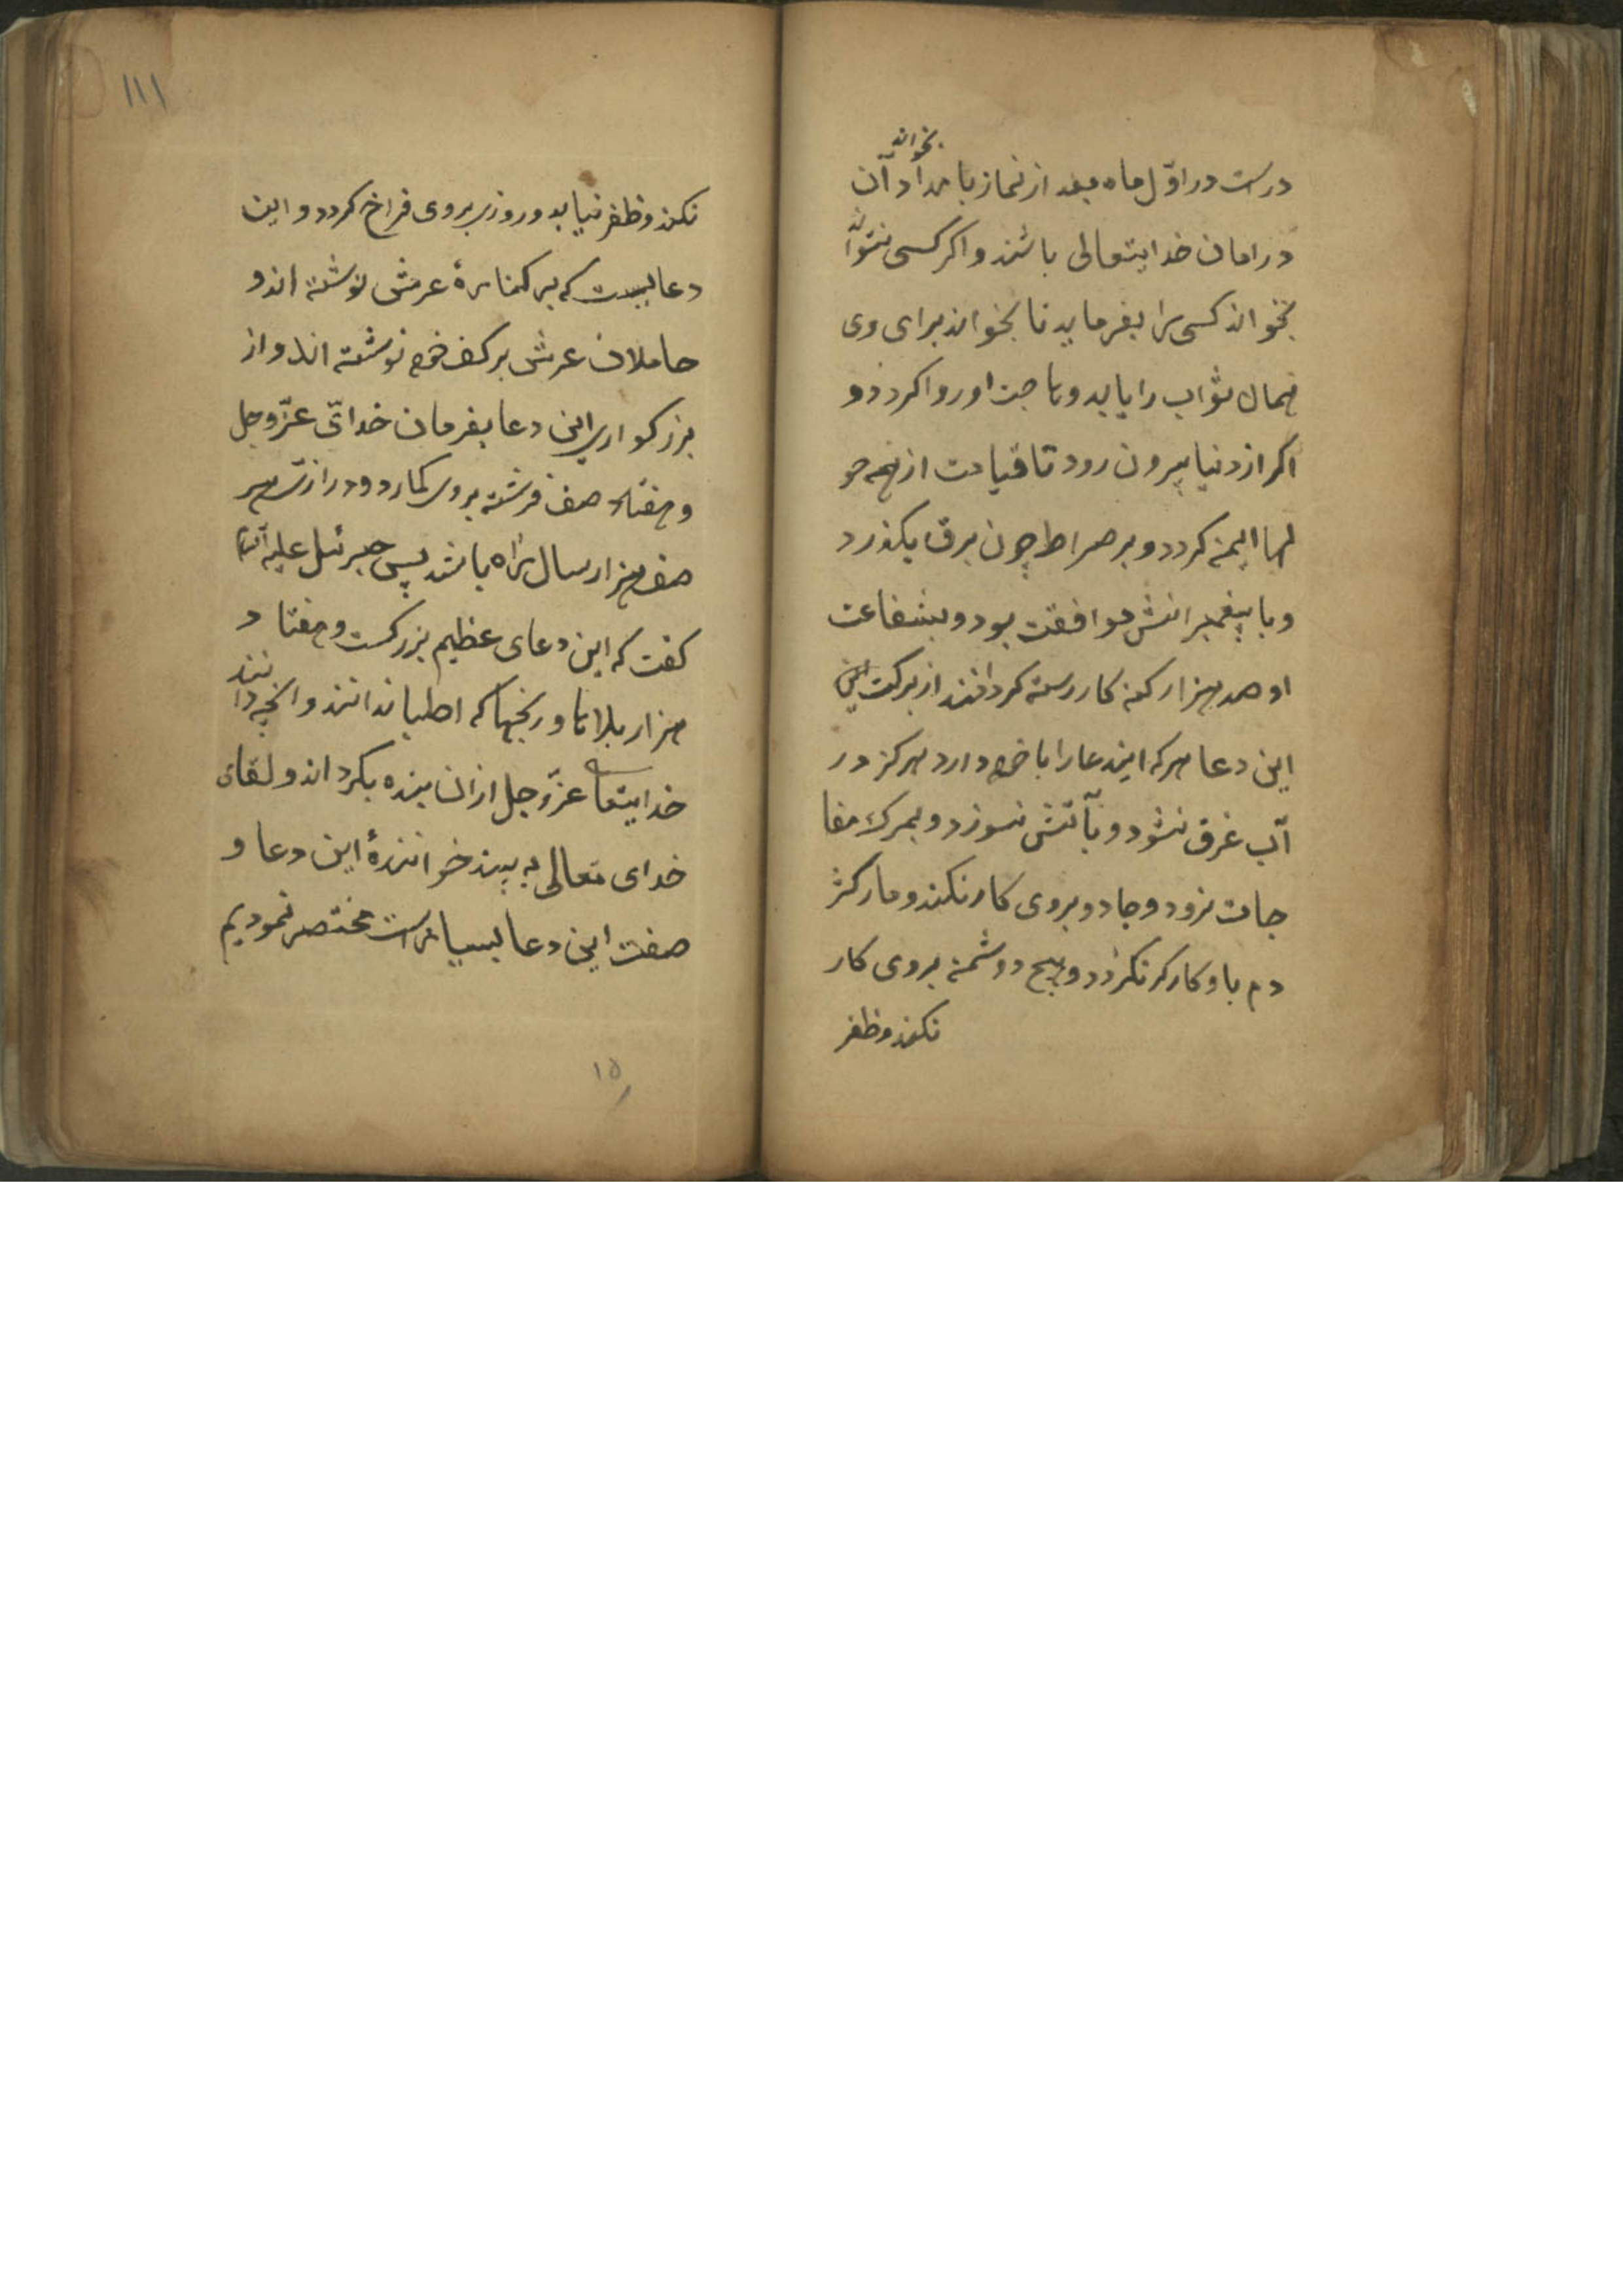 بخواند
درست در اوّل ماه بعد از نماز بامداد آن
در امان خدایتعالی باشند و اکر کسی نتواند
بخواند کسی را بفرماید تا بخواند برای وی
همان ثواب را یابد و حاجت او روا کردد و
اکر از دنیا بیرون رود تا قیامت از همه هو
لها ایمن کردد و بر صراط چون برق بکذرد
و با پیغمبرانش موافقت بود و بشفاعت
او صد هزار کنه کار رسته کردانند از برکت این
این دعا هر که ایندعا را با خود دارد هرکز در
آب غرق نشود و بآتش نسوزد و بمرک مفا
جات نرود و جادو بروی کار نکند و مار کژ
دم باو کارکر نکردد و هیچ دوشمن بروی کار
نکند و ظفر
۱۱۱
نکند و ظفر نیابد و روزی بروی فراخ کردد و این
دعاییست که بر کناره عرش نوشته اند و
حاملان عرش بر کف خود نوشته اند و از
بزرکواری این دعا بفرمان خدای عزّ و جل
و هفتاد صف فرشته بروی کمارد و درازی هر
صف هزار سال راه باشد پس جبرئیل علیه السلام
کفت که این دعای عظیم بزرکست و هفتاد
هزار بلاها و رنجها که اطبا ندانند و انچه دانند
خدایتعالی عزّ و جل ازان بنده بکرداند و لقای
خدای تعالی به بیند خوانندهٔ این دعا و
صفت این دعا بسیارست مختصر نمودیم
۱۵